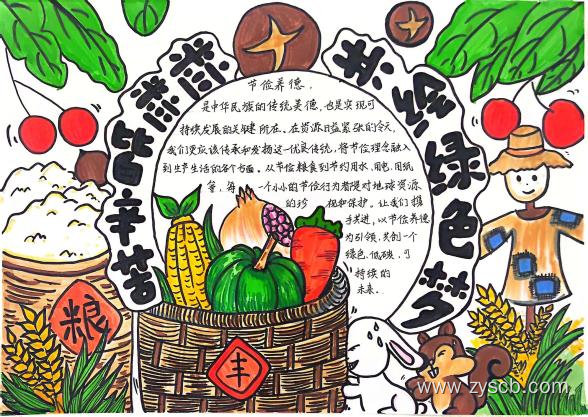 粒粒皆辛苦
共绘绿色梦
节俭养德，
是中华民族的传统美德，也是实现可
持续发展的关键所在。在资源日益紧张的今天，
我们更应该传承和发扬这一优良传统，将节俭理念融入
到生产生活的各个方面。从节约粮食到节约用水、用电、用纸
等，每一个小小的节俭行为都是对地球资源
的珍视和保护。让我们携
手共进，以节俭养德
为引领，共创一个
绿色、低碳、可
持续的
未来。
粮
丰
www.zyscb.com